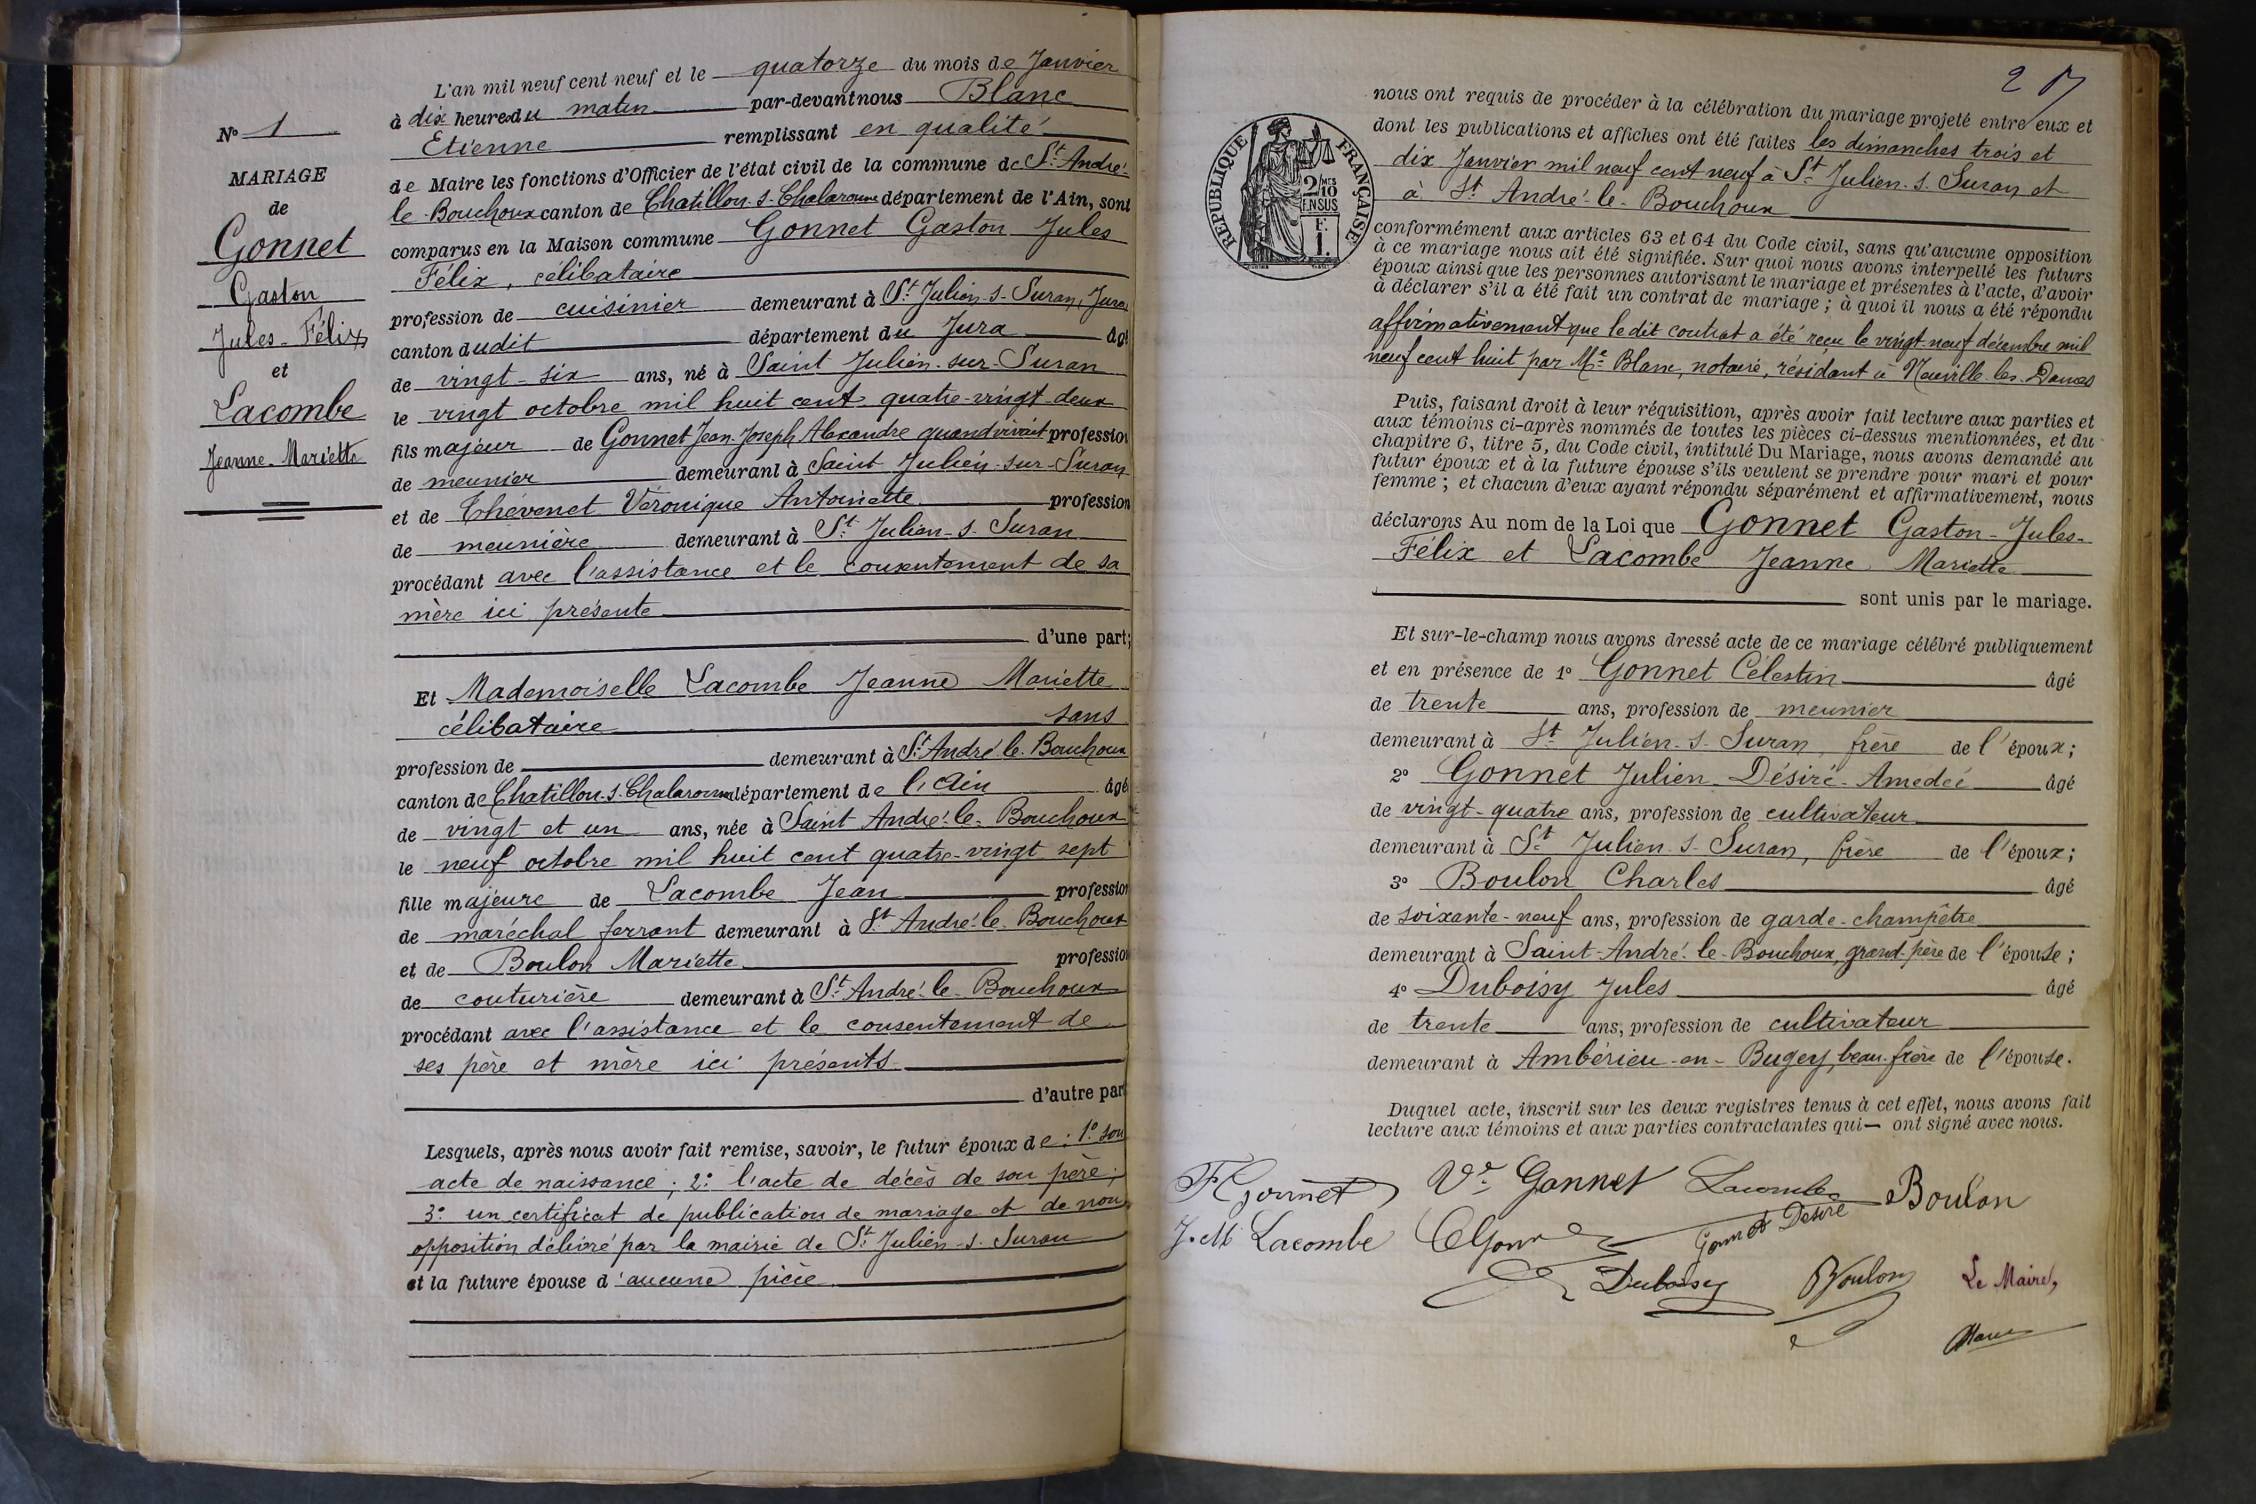 L'an mil neuf cent neuf et le quatorze du mois de Janvier
à dix heures du matin par-devant nous Blanc
Etienne remplissant en qualité
de Maire les fonctions d'Officier de l'état civil de la commune de St. André-
le-Bouchoux canton de Chatillon-s-Chalaronne département de l'Ain, sont
comparus en la Maison commune Gonnet Gaston Jules
Félix, célibataire
profession de cuisinier demeurant à St. Julien-s-Suran, Jura
canton dudit département du Jura âgé
de vingt-six ans, né à Saint Julien-sur-Suran
le vingt octobre mil huit cent quatre-vingt-deux
fils majeur de Gonnet Jean-Joseph Alexandre quand vivait profession
de meunier demeurant à Saint Julien-sur-Suran
et de Thévenet Véronique Antoinette profession
de meunière demeurant à St. Julien-s-Suran
procédant avec l'assistance et le consentement de sa
mère ici présente
d'une part;
Et Mademoiselle Lacombe Jeanne Mariette
célibataire sans
profession de demeurant à St. André-le-Bouchoux
canton de Chatillon-s-Chalaronne département de l'Ain âgé
de vingt et un ans, née à Saint André-le-Bouchoux
le neuf octobre mil huit cent quatre-vingt sept
fille majeure de Lacombe Jean profession
de maréchal ferrant demeurant à St. André-le-Bouchoux
et de Boulon Mariette profession
de couturière demeurant à St. André-le-Bouchoux
procédant avec l'assistance et le consentement de
ses père et mère ici présents
d'autre part
Lesquels, après nous avoir fait remise, savoir, le futur époux de : 1° son
acte de naissance ; 2° l'acte de décès de son père ;
3° un certificat de publication de mariage et de non
opposition délivré par la mairie de St. Julien-s-Suran
et la future épouse d'aucune pièce
N° 1
MARIAGE
de
Gonnet
Gaston
Jules-Félix
et
Lacombe
Jeanne-Mariette
2
REPUBLIQUE FRANÇAISE
2/10 MES
EN SUS
1 F.
nous ont requis de procéder à la célébration du mariage projeté entre eux et
dont les publications et affiches ont été faites les dimanches trois et
dix Janvier mil neuf cent neuf à St. Julien-s-Suran et
à St. André-le-Bouchoux
conformément aux articles 63 et 64 du Code civil, sans qu'aucune opposition
à ce mariage nous ait été signifiée. Sur quoi nous avons interpellé les futurs
époux ainsi que les personnes autorisant le mariage et présentes à l'acte, d'avoir
à déclarer s'il a été fait un contrat de mariage ; à quoi il nous a été répondu
affirmativement que ledit contrat a été reçu le vingt-neuf décembre mil
neuf cent huit par Me Blanc, notaire, résidant à Neuville-les-Dames
Puis, faisant droit à leur réquisition, après avoir fait lecture aux parties et
aux témoins ci-après nommés de toutes les pièces ci-dessus mentionnées, et du
chapitre 6, titre 5, du Code civil, intitulé Du Mariage, nous avons demandé au
futur époux et à la future épouse s'ils veulent se prendre pour mari et pour
femme ; et chacun d'eux ayant répondu séparément et affirmativement, nous
déclarons Au nom de la Loi que Gonnet Gaston-Jules-
Félix et Lacombe Jeanne Mariette
sont unis par le mariage.
Et sur-le-champ nous avons dressé acte de ce mariage célébré publiquement
et en présence de 1° Gonnet Célestin âgé
de trente ans, profession de meunier
demeurant à St. Julien-s-Suran, frère de l'époux;
2° Gonnet Julien-Désiré-Amedeé âgé
de vingt-quatre ans, profession de cultivateur
demeurant à St. Julien-s-Suran, frère de l'époux;
3° Boulon Charles âgé
de soixante-neuf ans, profession de garde-champêtre
demeurant à Saint-André-le-Bouchoux, grand-père de l'épouse;
4° Duboisy Jules âgé
de trente ans, profession de cultivateur
demeurant à Ambérieu-en-Bugey, beau-frère de l'épouse.
Duquel acte, inscrit sur les deux registres tenus à cet effet, nous avons fait
lecture aux témoins et aux parties contractantes qui — ont signé avec nous.
F Gonnet Ve Gonnet Lacombe Boulon
J. M Lacombe Gonnet Désiré
Duboisy Boulon Le Maire,
Blanc